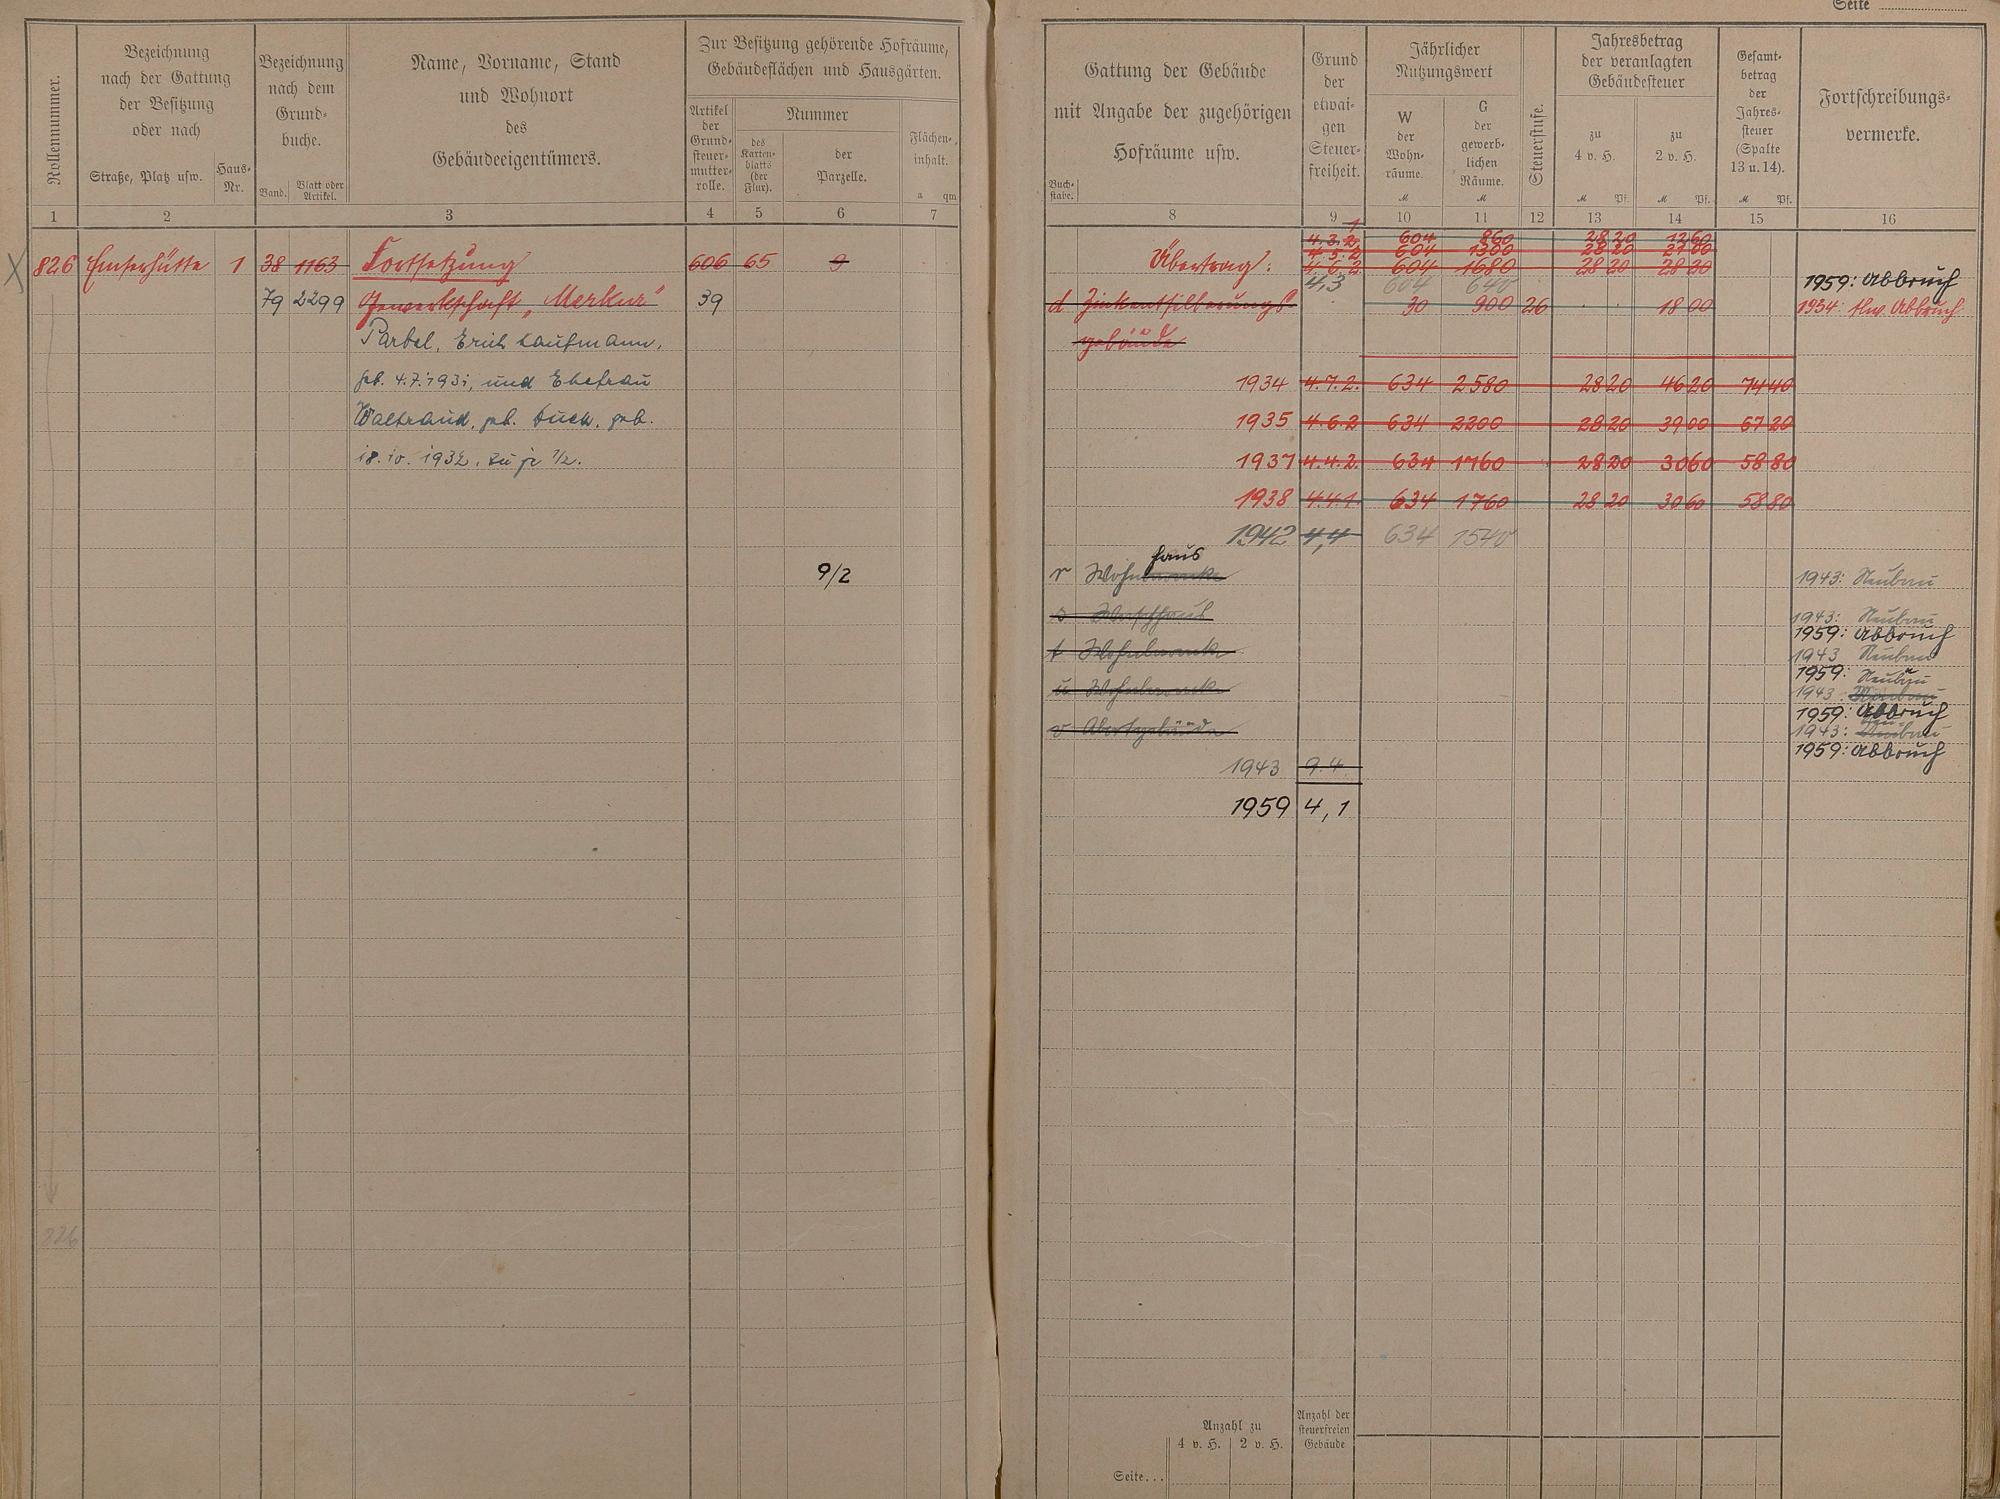 Seite
Rollennummer.
Bezeichnung
nach der Gattung
der Besitzung
oder nach
Straße, Platz usw.
Haus-
Nr.
Bezeichnung
nach dem
Grund-
buche.
Band.
Blatt oder
Artikel.
Name, Vorname, Stand
und Wohnort
des
Gebäudeeigentümers.
Zur Besitzung gehörende Hofräume,
Gebäudeflächen und Hausgärten.
Artikel
der
Grund-
steuer-
mutter-
rolle.
Nummer
des
Karten-
blatts
(der
Flur).
der
Parzelle.
Flächen-
inhalt.
a qm
1 2 3 4 5 6 7
826 Emserhütte 1 38 1163 Fortsetzung 606 65 9
79 2299 Gewerkschaft „Merkur" 39
Parbel, Erich Kaufmann,
geb. 4.7.1931, und Ehefrau
Waltraud, geb. Buch, geb.
18.10.1932, zu je 1/2.
9/2
226
Gattung der Gebäude
mit Angabe der zugehörigen
Hofräume usw.
Buch-
stabe.
Grund
der
etwai-
gen
Steuer-
freiheit.
Jährlicher
Nutzungswert
W
der
Wohn-
räume.
M
G
der
gewerb-
lichen
Räume.
M
Steuerstufe.
Jahresbetrag
der veranlagten
Gebäudesteuer
zu
4 v. H.
M Pf.
zu
2 v. H.
M Pf.
Gesamt-
betrag
der
Jahres-
steuer
(Spalte
13 u. 14).
M Pf.
Fortschreibungs-
vermerke.
8 9 10 11 12 13 14 15 16
4.3.2 604 860 28 20 12 60
Übertrag: 4.5.2 604 1300 28 20 21 00
4.6.2 604 1680 28 20 28 20
4,3 604 640 1959: Abbruch
d Zinkentsilberungs- 30 900 26 18 00 1934: tlw. Abbruch
gebäude
1934 4.7.2. 634 2580 28 20 46 20 74 40
1935 4.6.2 634 2200 28 20 39 00 67 20
1937 4.4.2. 634 1760 28 20 30 60 58 80
1938 4.4.1. 634 1760 28 20 30 60 58 80
1942 4,4 634 1540
haus
r Wohnbaracke 1943: Neubau
s Waschhaus 1943: Neubau
1959: Abbruch
t Wohnbaracke 1943 Neubau
1959: Neubau
u Wohnbaracke 1943: Neubau
1959: Abbruch
v Abortgebäude 1943: Neubau
1959: Abbruch
1943 9.4.
1959 4,1
Anzahl zu
4 v. H. 2 v. H.
Anzahl der
steuerfreien
Gebäude
Seite...